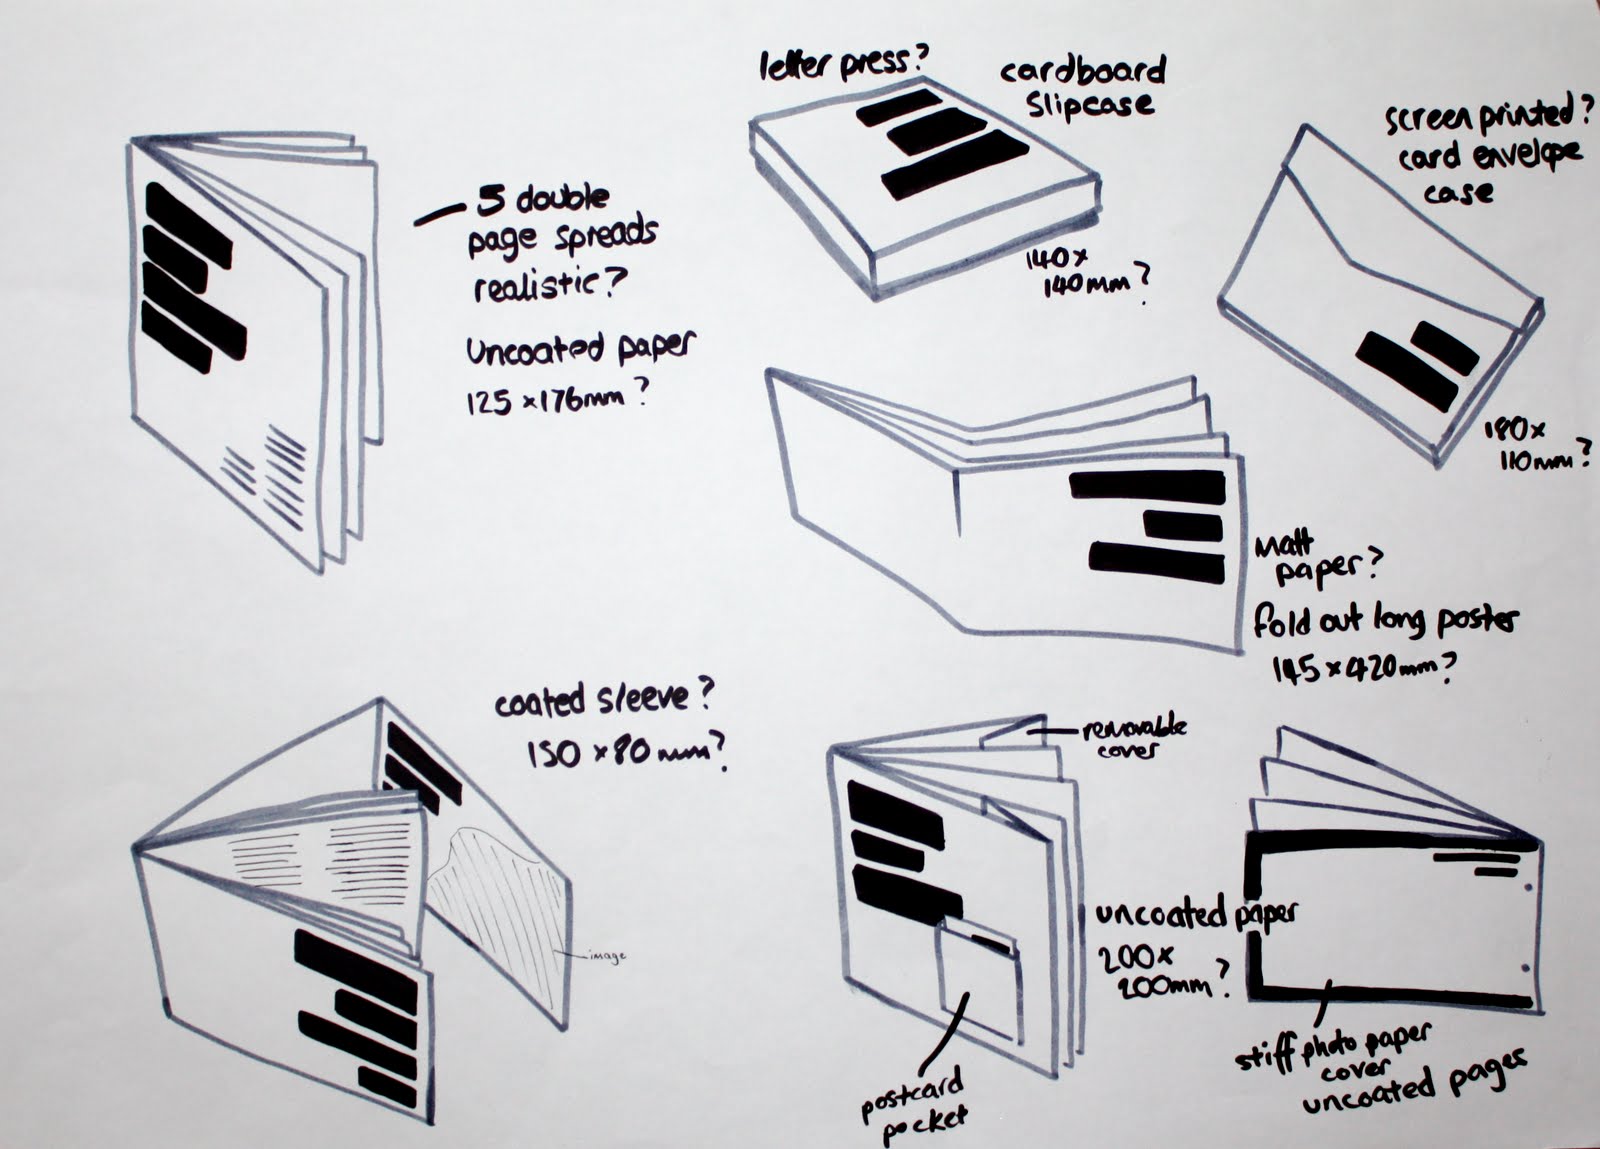 5 double
page spreads
realistic?
Uncoated paper
125 x 176mm?
letter press?
cardboard
slipcase
140 x
140mm?
screen printed?
card envelope
case
180 x
110mm?
Matt
paper?
fold out long poster
145 x 420mm?
coated sleeve?
150 x 80 mm?
image
removable
cover
uncoated paper
200 x
200mm?
postcard
pocket
stiff photo paper
cover
uncoated pages